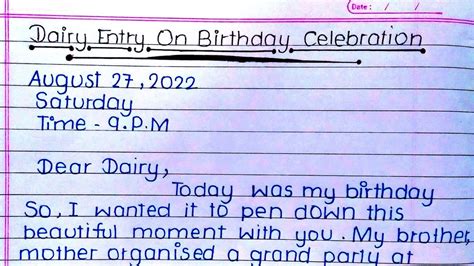 Date : / /
Dairy Entry On Birthday Celebration
August 27, 2022
Saturday
Time - 9.P.M
Dear Dairy,
Today was my birthday
So, I wanted it to pen down this
beautiful moment with you. My brother,
mother organised a grand party at